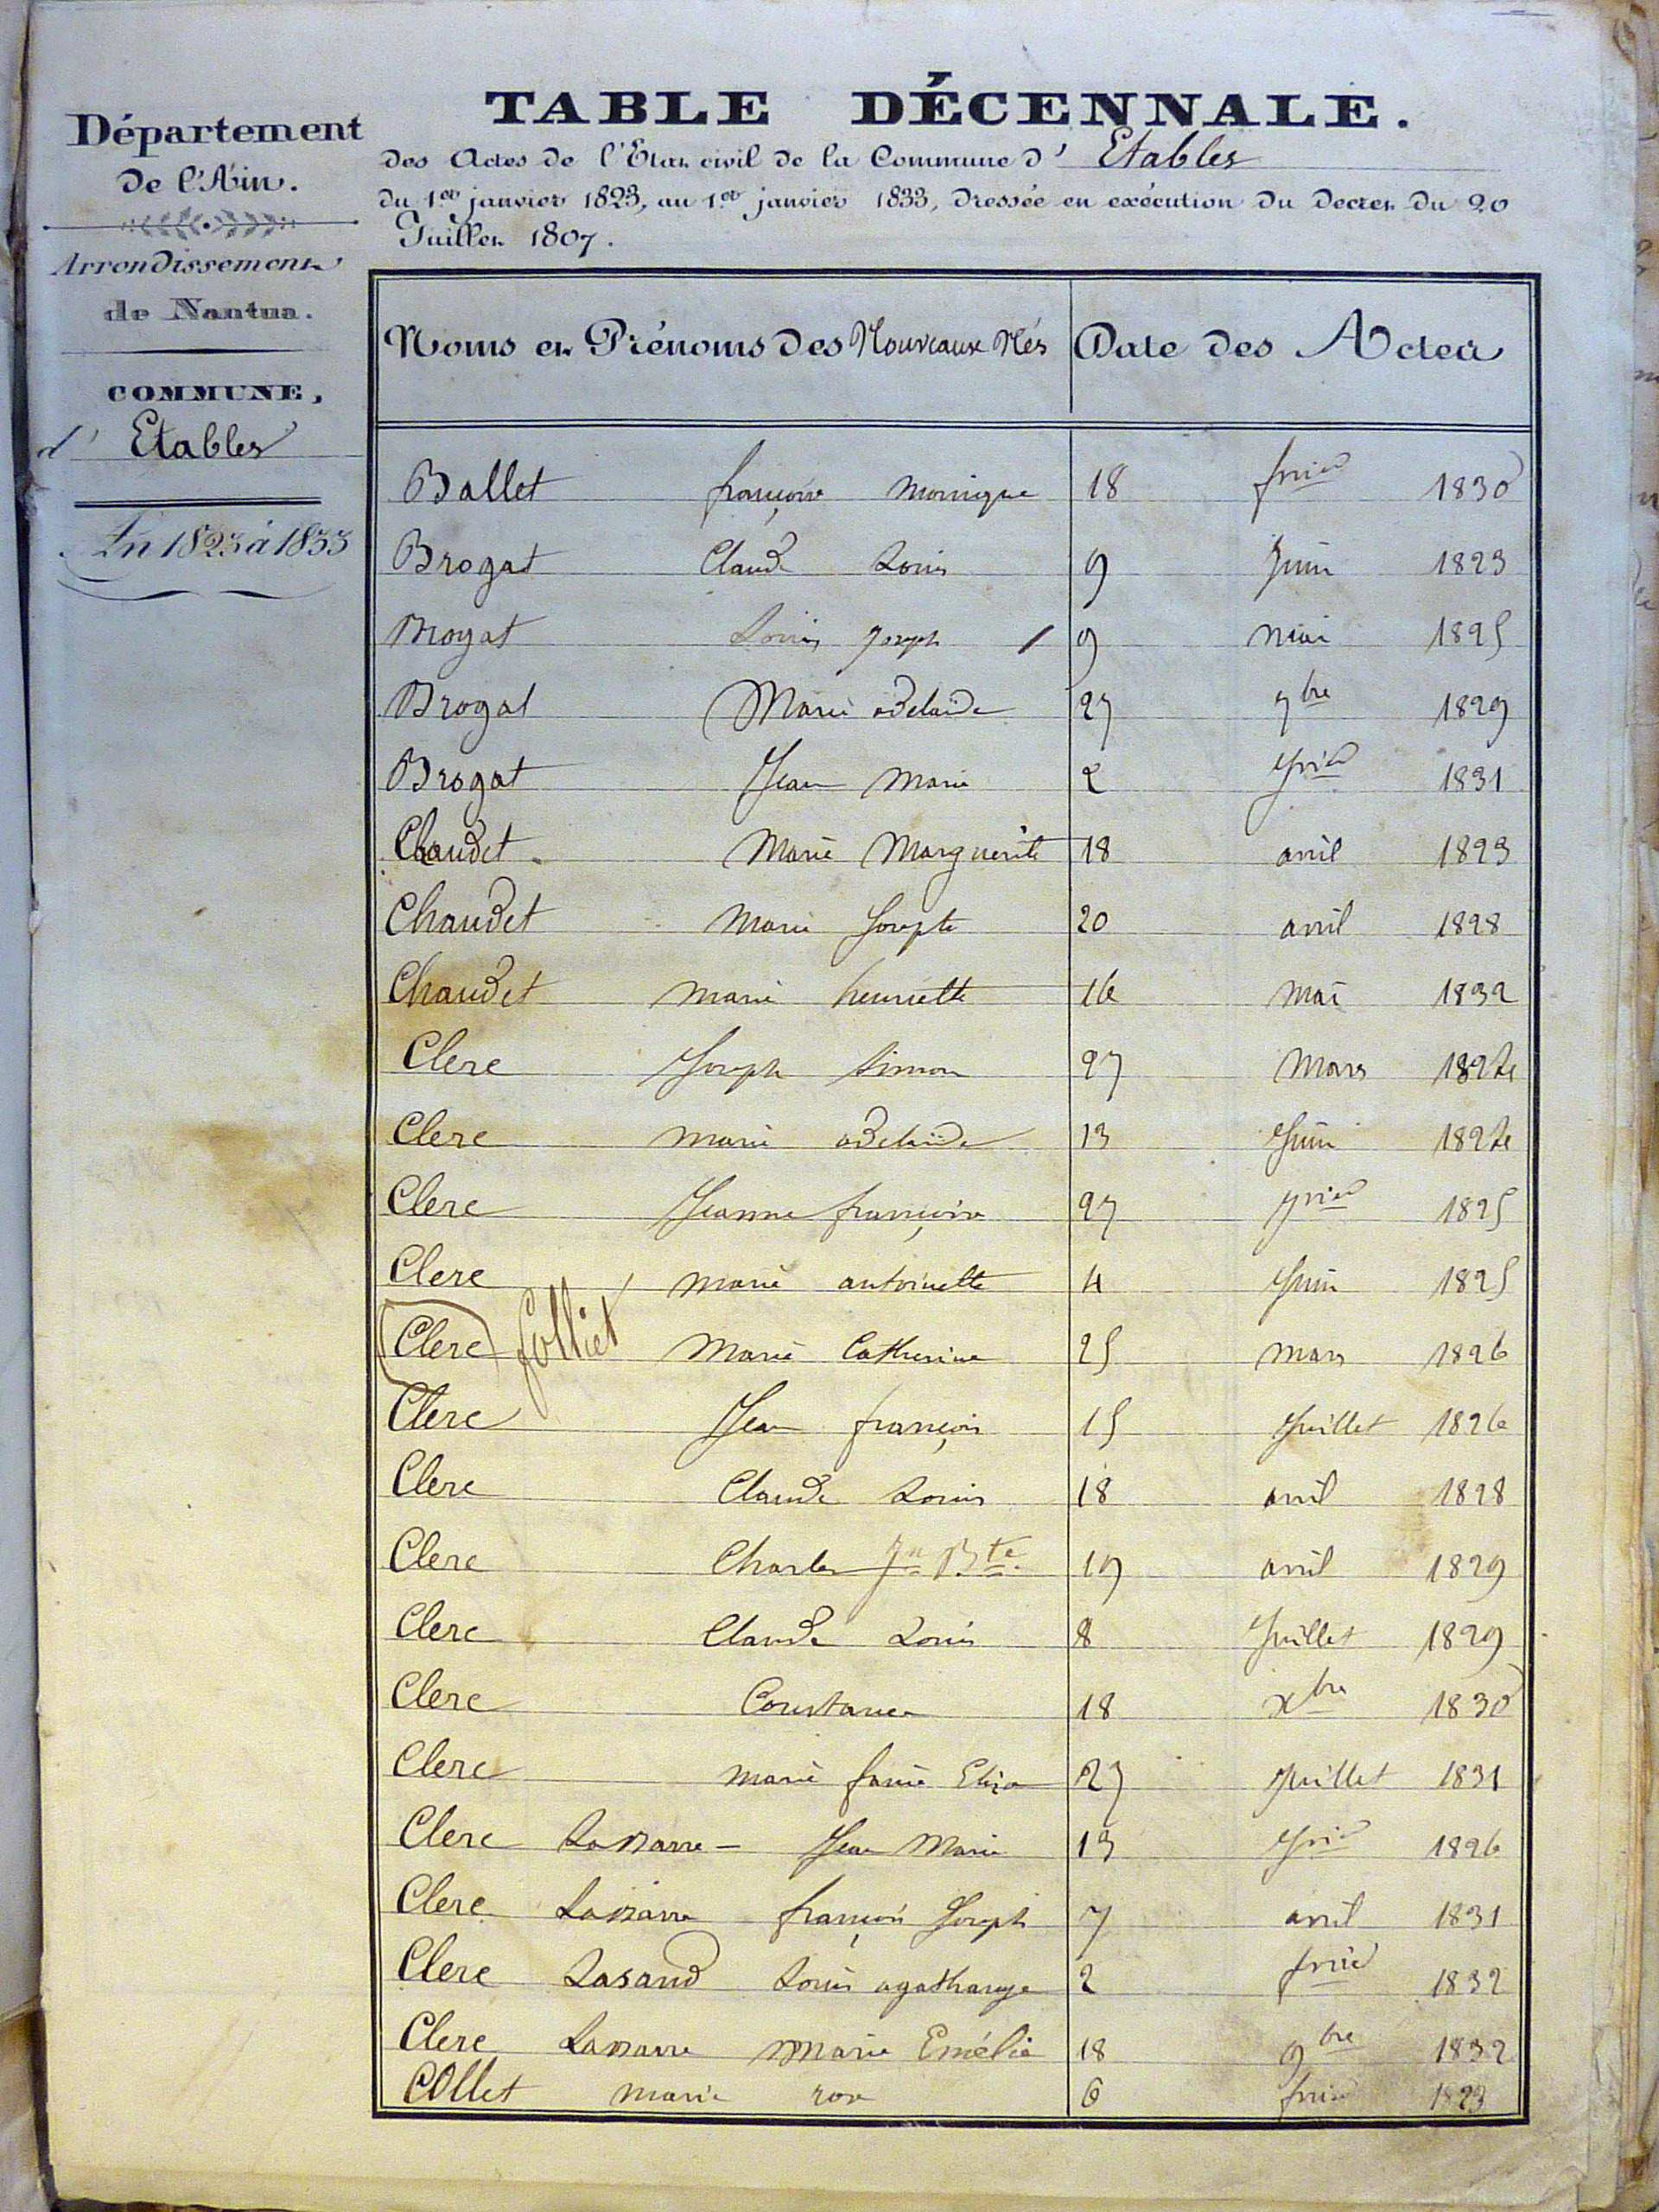 TABLE DÉCENNALE.
des Actes de l'État civil de la Commune d' Etables
du 1.er janvier 1823, au 1.er janvier 1833, dressée en exécution du Décret du 20
Juillet 1807.
Département
de l'Ain.
Arrondissement
de Nantua.
COMMUNE,
d' Etables
En 1823 à 1833
Noms et Prénoms des Nouveaux Nés Date des Actes
Ballet françoise monique 18 fvrier 1830
Brogat Claude Louis 9 Juin 1823
Brogat Louis Joseph / 9 mai 1825
Brogat Marie adelaide 27 7bre 1829
Brogat Jean Marie 2 1831
Chaudet Marie Marguerite 18 avril 1823
Chaudet Marie Josephte 20 avril 1828
Chaudet marie henriette 16 mai 1832
Clerc Joseph Simon 27 Mars 1824
Clerc marie adelaïde 13 Juin 1824
Clerc Jeanne françoise 27 1825
Clerc marie antoinette 4 Juin 1825
(Clerc) folliet Marie Catherine 25 mars 1826
Clerc Jean françois 15 Juillet 1826
Clerc Claude Louis 18 avril 1828
Clerc Charles Jn Bte 19 avril 1829
Clerc Claude Louis 8 Juillet 1829
Clerc Constance 18 xbre 1830
Clerc marie fanie Eliza 27 Juillet 1831
Clerc Jean Marie 13 1826
Clerc françois Joseph 7 avril 1831
Clerc Lasand Louis agathange 2 fvrier 1832
Clerc Marie Emélie 18 9bre 1832
Collet marie rose 6 fvrier 1823